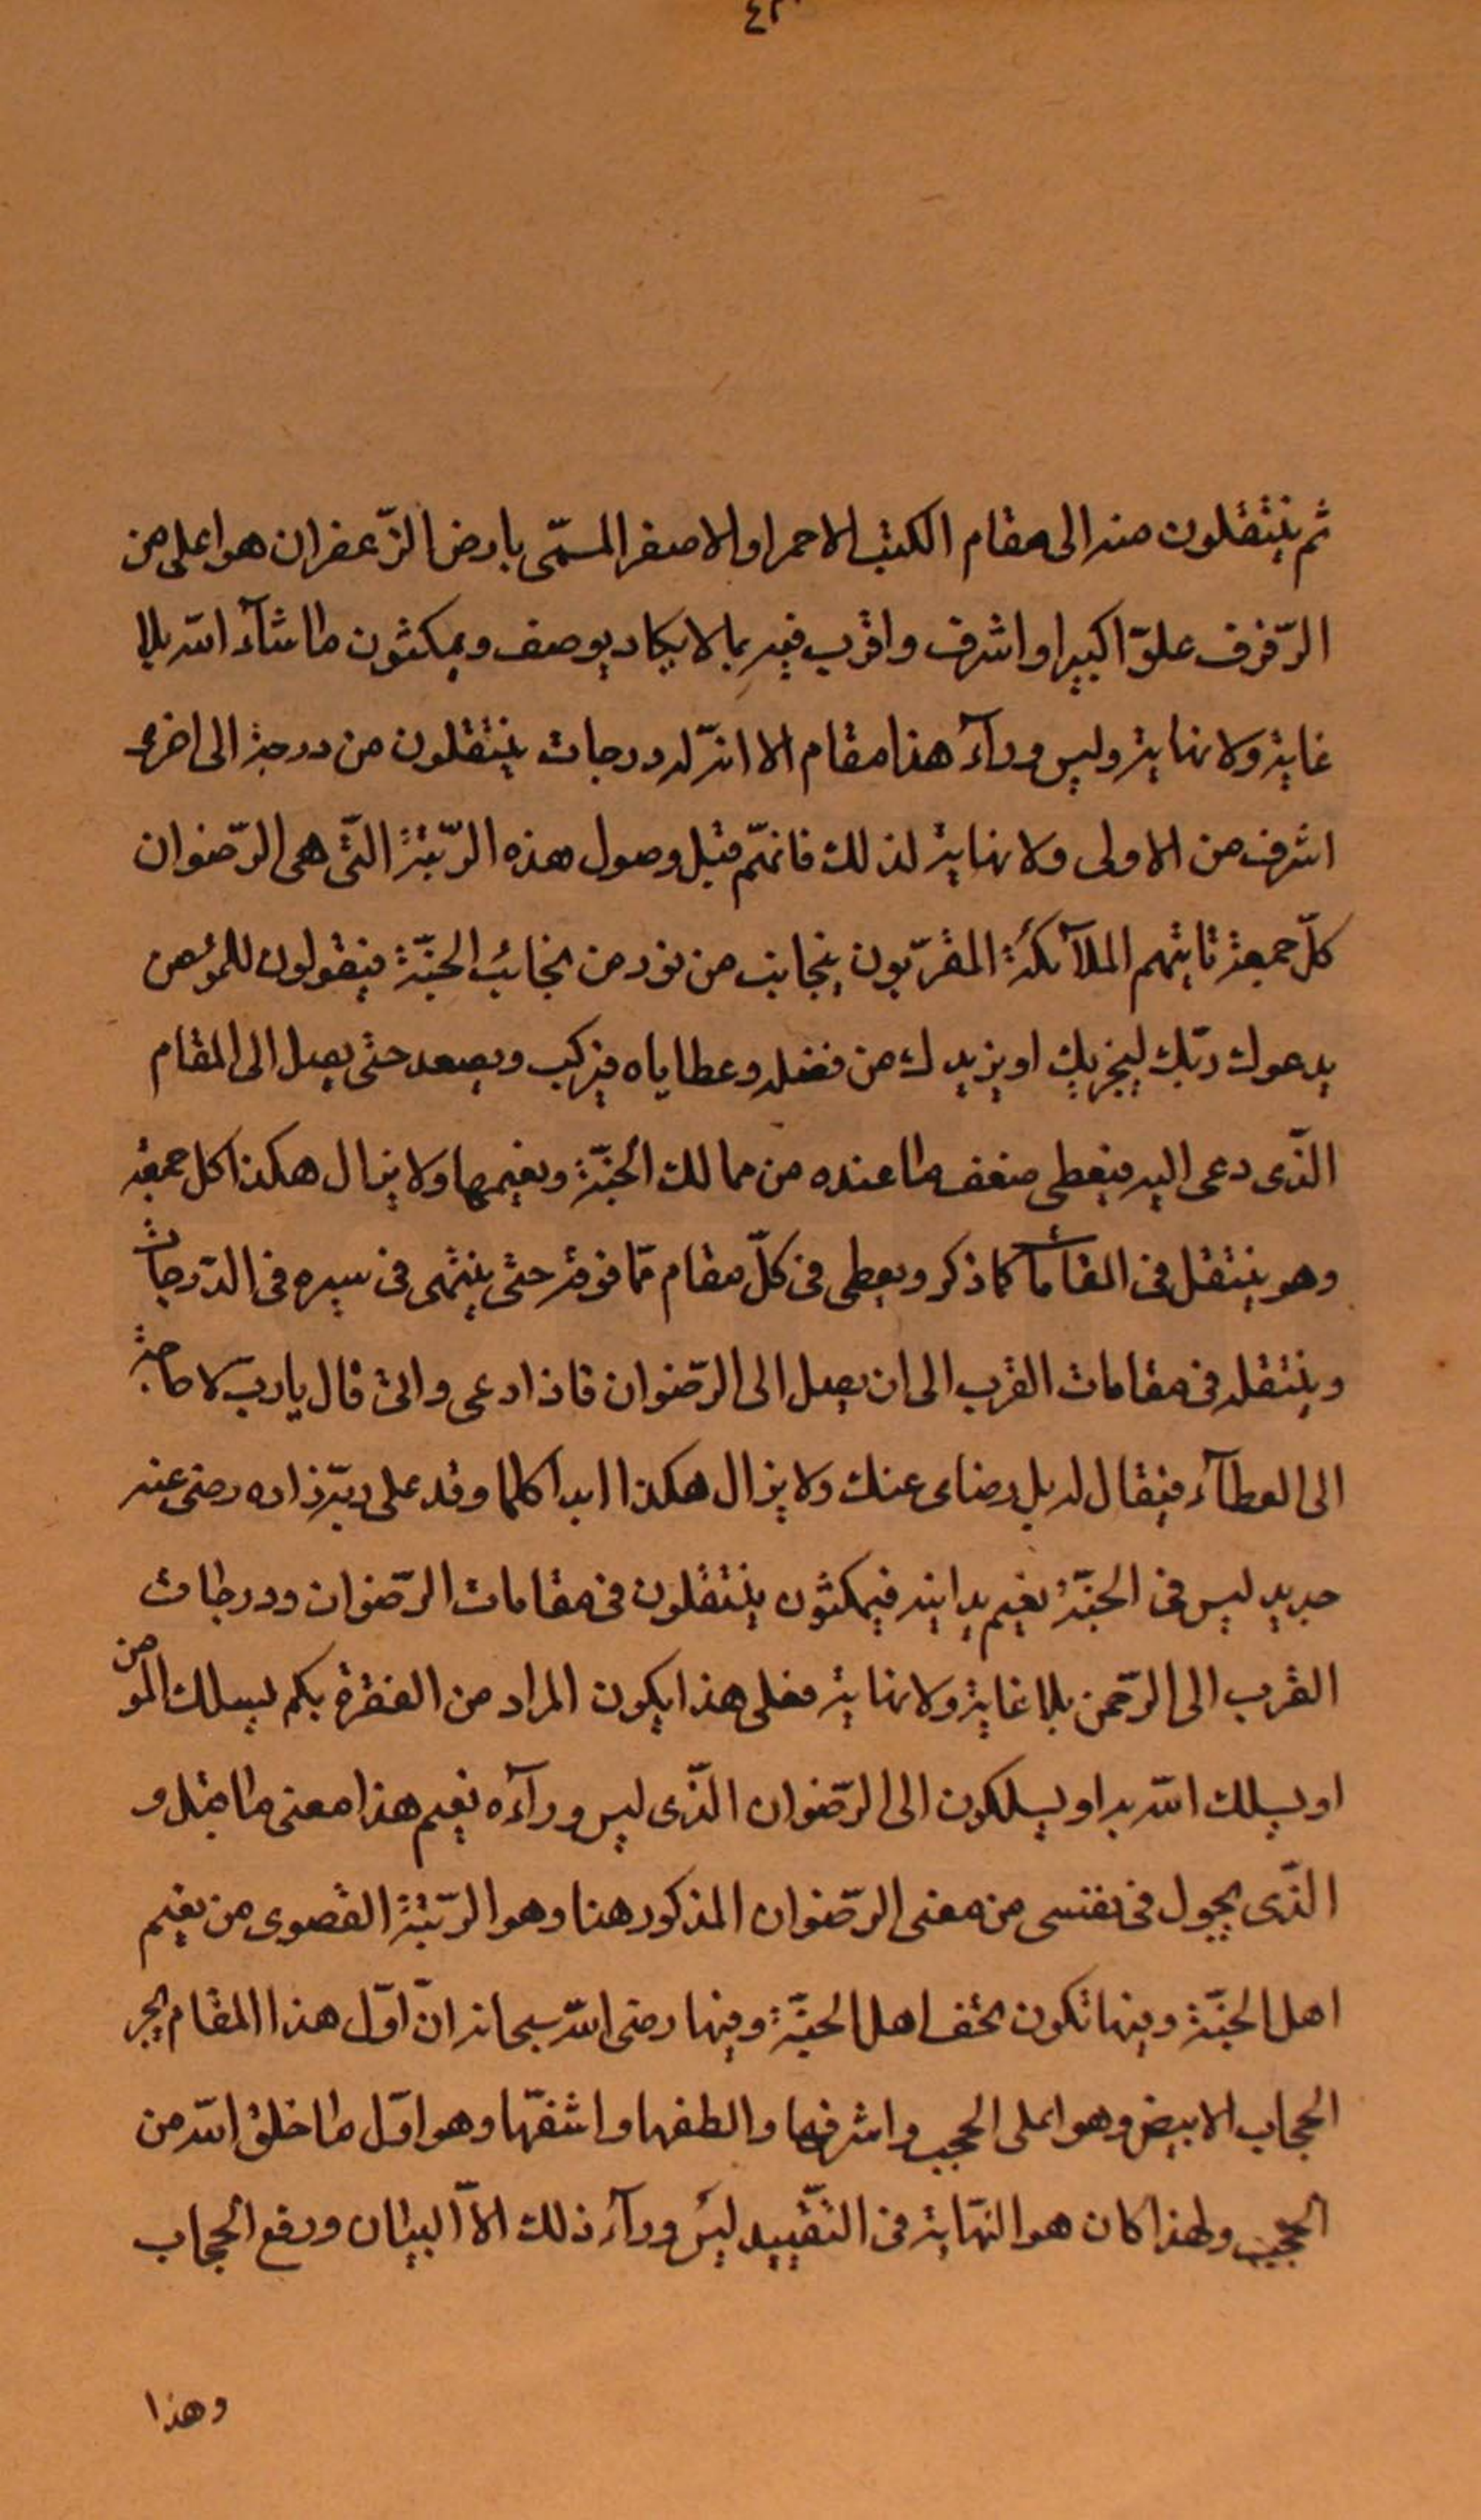 ثم ينتقلون منه الى مقام الكثيب الاحمر او الاصفر المسمّى بارض الزّعفران هو اعلى من
الرّفرف علوّا كبيرا واشرف واقرب فيه بما لا يكاد يوصف ويمكثون ما شآء الله بلا
غاية ولا نهاية وليس ورآء هذا مقام الا انّه له درجات ينتقلون من درجة الى اخرى
اشرف من الاولى ولا نهاية لذلك فانهّم قبل وصول هذه الرّتبة الّتى هى الرّضوان
كلّ جمعة تاتيهم الملآئكة المقرّبون بنجايب من نور من نجائب الجنّة فيقولون للمؤمن
يدعوك ربّك ليجزيك او يزيدك من فضله وعطاياه فيركب ويصعد حتى يصل الى المقام
الّذى دعى اليه فيعطى ضعف ما عنده من ممالك الجنّة ونعيمها ولا يزال هكذا كل جمعة
وهو ينتقل فى المقامات كما ذكر ويعطى فى كلّ مقام ممّا فوقه حتى ينتهى فى سيره فى الدّرجات
وينتقله فى مقامات القرب الى ان يصل الى الرّضوان فاذا دعى واتى قال يا رب لا حاجة
الى العطآء فيقال له بل رضاى عنك ولا يزال هكذا ابدا كلما وفد على ربّه زاده رضى عنه
جديد ليس فى الجنّة نعيم يدانيه فيمكثون ينتقلون فى مقامات الرّضوان ودرجات
القرب الى الرّحمن بلا غاية ولا نهاية فعلى هذا يكون المراد من الفقرة بكم يسلك المؤمن
او يسلك الله به او يسلكون الى الرّضوان الّذى ليس ورآءه نعيم هذا معنى ما قيل و
الّذى يجول فى نفسى من معنى الرّضوان المذكور هنا وهو الرّتبة القصوى من نعيم
اهل الجنّة وفيها تكون تحف اهل الجنّة وفيها رضى الله سبحانه انّ اوّل هذا المقام
الحجاب الابيض وهو اعلى الحجب واشرفها والطفها واشفّها وهو اوّل ما خلق الله من
الحجب ولهذا كان هو النّهاية فى التّقييد ليس ورآء ذلك الاّ البيان ورفع الحجاب
وهذا